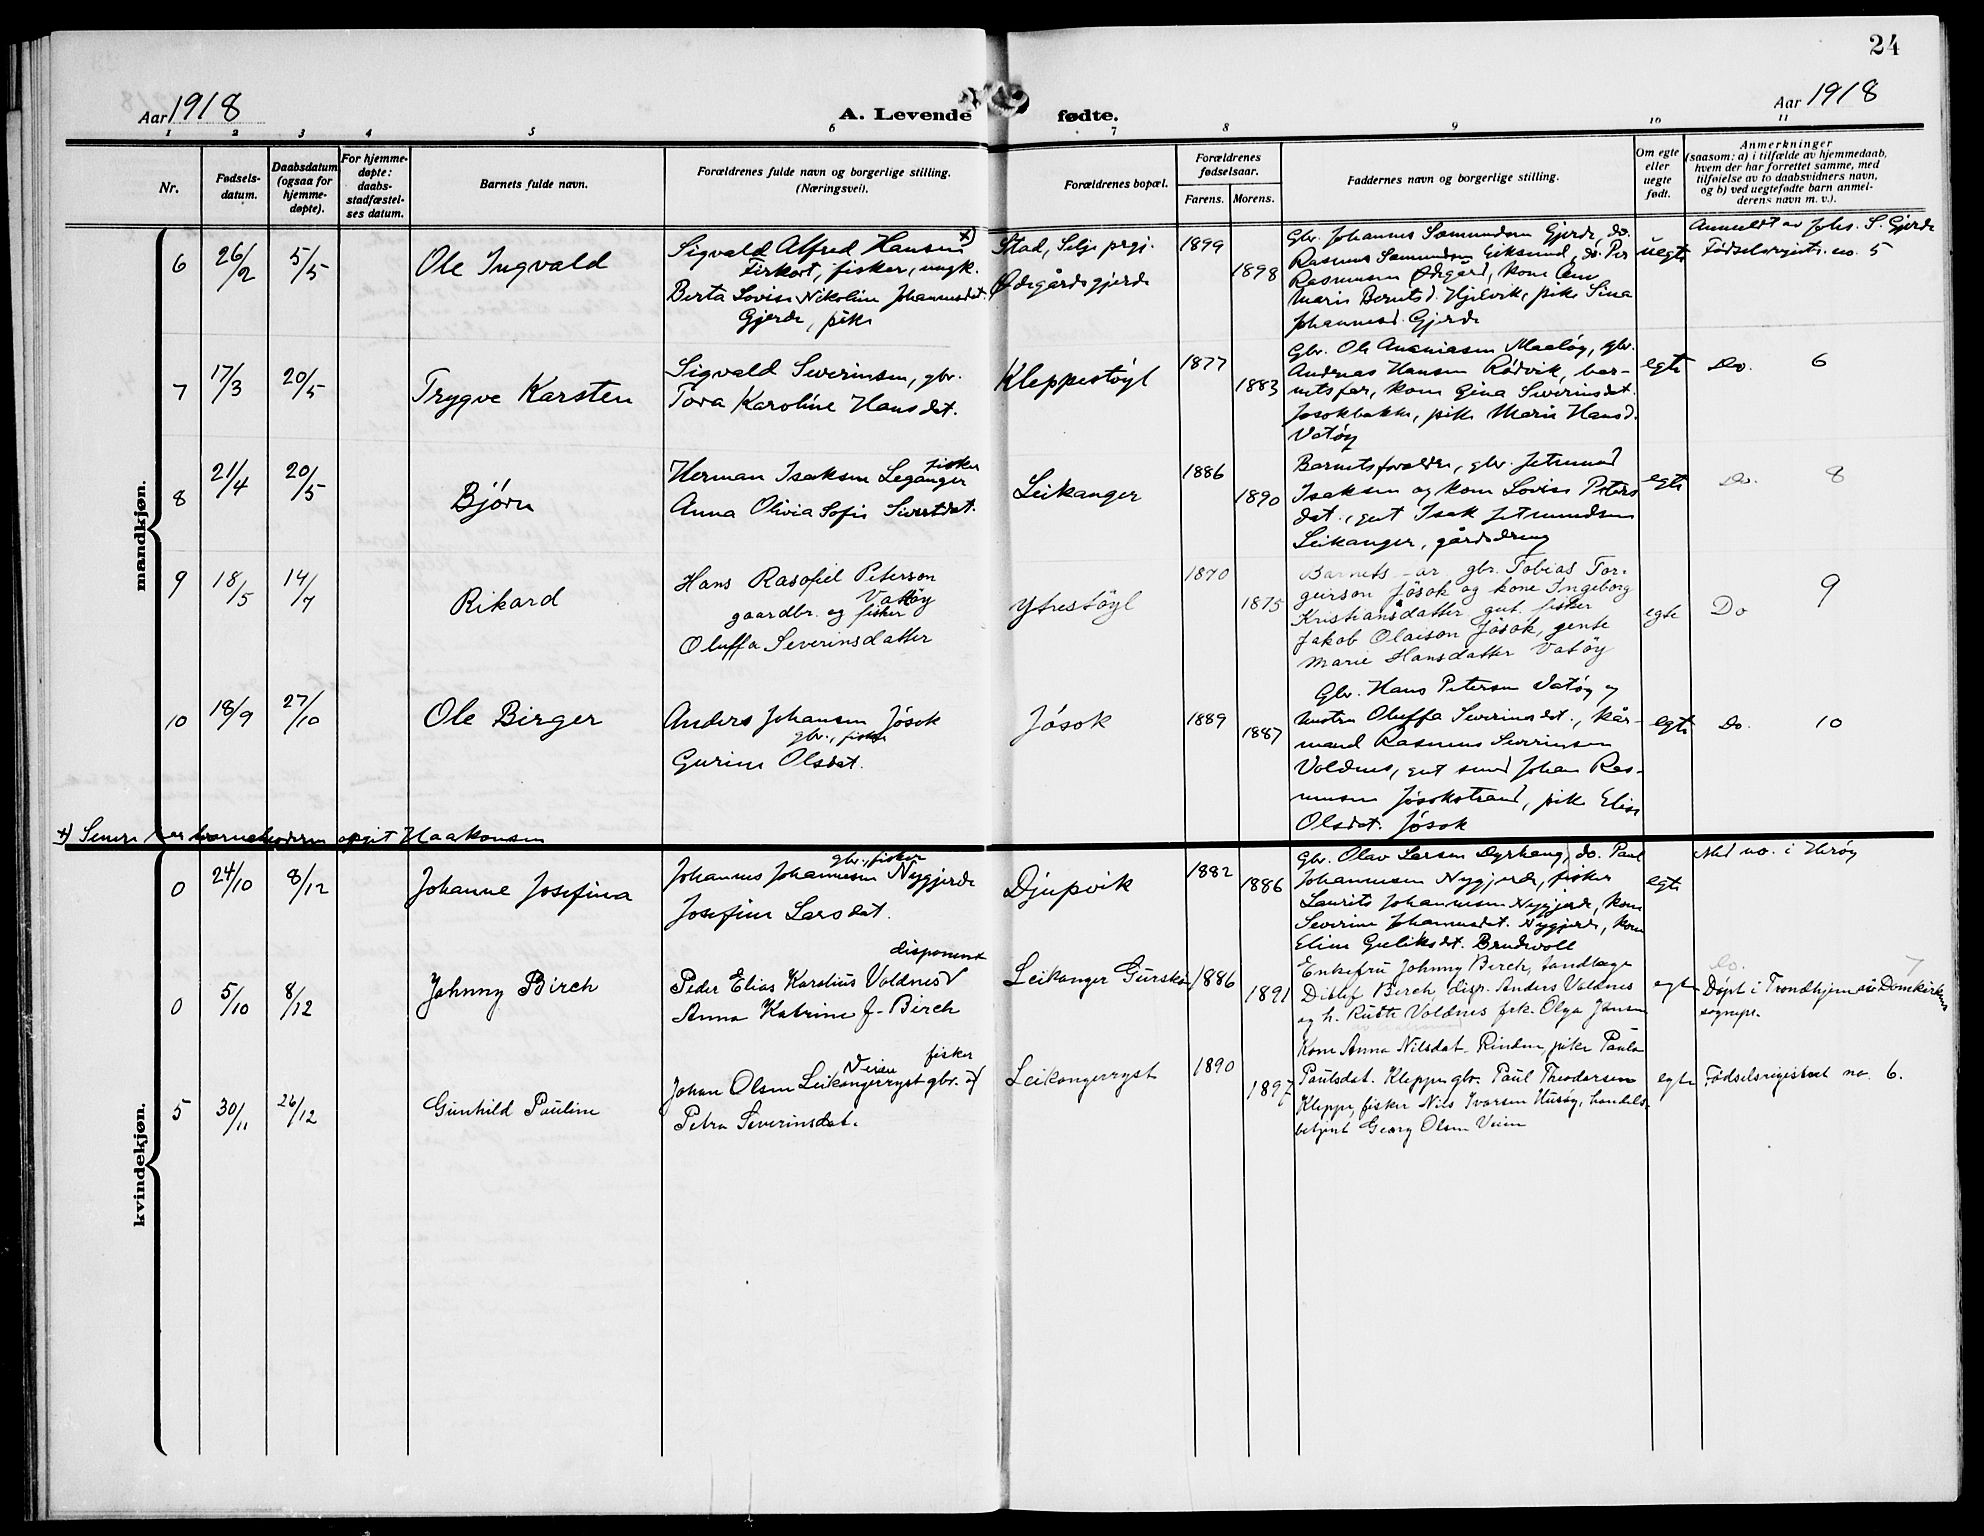 24
Aar 1918
A. Levende fødte.
Aar 1918
1 2 3 4 5 6 7 8 9 10 11
Nr.
Fødsels-
datum.
Daabsdatum
(ogsaa for
hjemme-
døpte).
For hjemme-
døpte:
daabs-
stadfæstel-
ses datum.
Barnets fulde navn.
Forældrenes fulde navn og borgerlige stilling.
(Næringsvei).
Forældrenes bopæl.
Forældrenes
fødselsaar.
Farens. Morens.
Faddernes navn og borgerlige stilling.
Om egte
eller
uegte
født.
Anmerkninger
(saasom: a) i tilfælde av hjemmedaab,
hvem der har forrettet samme, med
tilføielse av to daabsvidners navn,
og b) ved uegtefødte barn anmel-
derens navn m. v.).
mandkjøn.
6 26/2 5/5 Ole Ingvald
Sigvald Alfred Hansen x)
fisker, ungk.
Berta Lovise Nikoline Johannesdat.
Gjerde, pike
Stad, Selje prgj.
Ødegårdsgjerde
1899 1898
Gbr. Johannes Samundsen Gjerde, do.
Rasmus Samundsen Eiksund, do. Per
Rasmussen Ødegård, kone Ane
Marie Berntsd. Hjelvik, pike Sina
Johannesd. Gjerde
uegte
Anmeldt av Johs. S. Gjerde
Fødselsregistr. no. 5
7 17/3 20/5 Trygve Karsten
Sigvald Severinsen, gbr.
Tora Karoline Hansdat.
Kleppestøyl
1877 1883
Gbr. Ole Ananiasen Maaløy, gbr.
Andreas Hansen Rødvik, bar-
netsfar, kone Gina Severinsdat.
Jøsokbakke, pike Marie Hansd.
Vatøy
egte Do. 6
8 21/4 20/5 Bjørn
Herman Isaksen Leganger
fisker
Anna Olivia Sofie Sivertdat.
Leikanger
1886 1890
Barnetsforældre, gbr. Jetmund
Isaksen og kone Lovise Peters
dat., gut Isak Jetmundsen
Leikanger, gårdsdreng
egte Do. 8
9 18/5 14/7 Rikard
Hans Rasofiel Peterson
Vatøy
gaardbr. og fisker
Oluffa Severinsdatter
Ytrestøyl
1870 1875
Barnets far gbr. Tobias Tor-
geirson Jøsok og kone Ingeborg
Kristiansdatter gut. fisker
Jakob Olaison Jøsok, gente
Marie Hansdatter Vatøy
egte Do 9
10 18/9 27/10 Ole Birger
Anders Johansen Jøsok
gbr., fisker
Gurine Olsdat.
Jøsok
1889 1887
Gbr. Hans Petersen Vatøy og
hustru Oluffa Severinsdat., kår-
mand Rasmus Severinsen
Voldnes, gut smed Johan Ras-
mussen Jøsokstrand, pike Elise
Olsdat. Jøsok
egte Do. 10
x) Senere er barnefaderen opgit Haakonsen
kvindekjøn.
0 24/10 8/12 Johanne Josefina
gbr., fisker
Johannes Johannesen Nygjerde
Josefine Larsdat.
Djupvik
1882 1886
Gbr. Olav Larsen Dyrhaug, do. Paul
Johannesen Nygjerde, fisker
Laurits Johannesen Nygjerde, kone
Severine Johannesdat. Nygjerde, kone
Eline Guliksdt. Brudevoll
egte
Med no. i Herøy
0 5/10 8/12 Johnny Birch
disponent
Peder Elias Karolius Voldnes
Anna Katrine f. Birch
Leikanger Gurskø
1886 1891
Enkefru Johnny Birch, tandlæge
Ditlef Birch, disp. Anders Voldnes
og h. Ruth Voldnes frk. Olga Jansen
egte
Do. 7
Døpt i Trondhjem Domkirkens
sognepr.
5 30/11 26/12 Gunhild Pauline
Veien fisker
Johan Olsen Leikangerryst gbr. of
Petra Severinsdat.
Leikangerryst
1890 1897
Kone Anna Nilsdat. Rinden pike Paula
Paulsdat. Kleppe, gbr. Paul Theodorsen
Kleppe, fisker Nils Ivarsen Husøy, handels-
betjent Georg Olsen Veien
egte
Fødselsregistret no. 6.